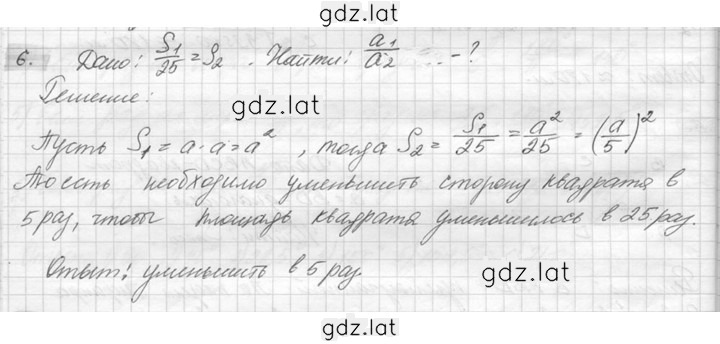 gdz.lat
6. Дано: S₁/25 = S₂ . Найти: a₁/a₂ - ?
Решение:
gdz.lat
Пусть S₁ = a · a = a² , тогда S₂ = S₁/25 = a²/25 = (a/5)²
То есть необходимо уменьшить сторону квадрата в
5 раз, чтобы площадь квадрата уменьшилось в 25 раз.
Ответ: уменьшить в 5 раз.
gdz.lat
gdz.lat